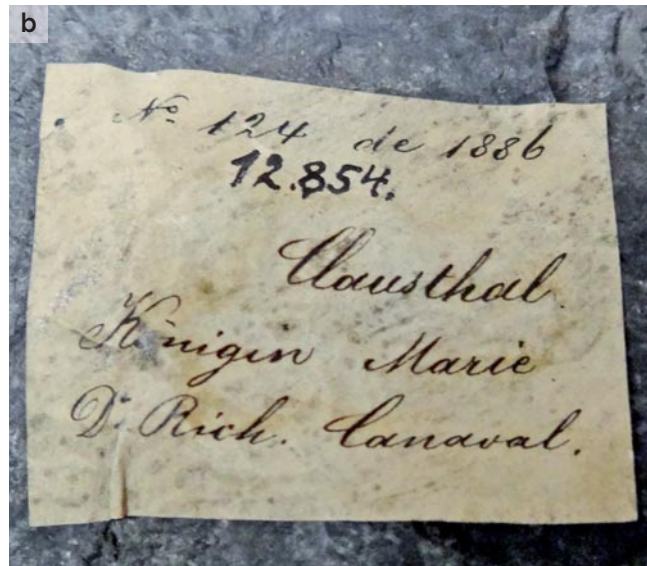 b
№ 124 de 1886
12.854.
Clausthal.
Königin Marie
Dr. Rich. Canaval.